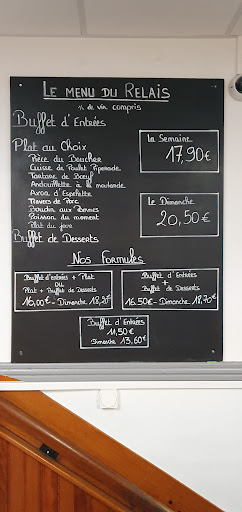 LE MENU DU RELAIS
¼ de vin compris
Buffet d'Entrées
Plat au Choix
Pièce du Boucher
Cuisse de Poulet Piperade
Tartare de Bœuf
Andouillette à la moutarde
Axoa d'Espelette
Travers de Porc
Boudin aux Pommes
Poisson du moment
Plat du jour
Buffet de Desserts
La Semaine
17,90€
Le Dimanche
20,50€
Nos Formules
Buffet d'entrées + Plat
ou
Plat + Buffet de Desserts
16,00€ - Dimanche 18,20€
Buffet d'Entrées
+
Buffet de Desserts
16.50€ - Dimanche 18,70€
Buffet d'Entrées
11,50€
Dimanche 13,60€